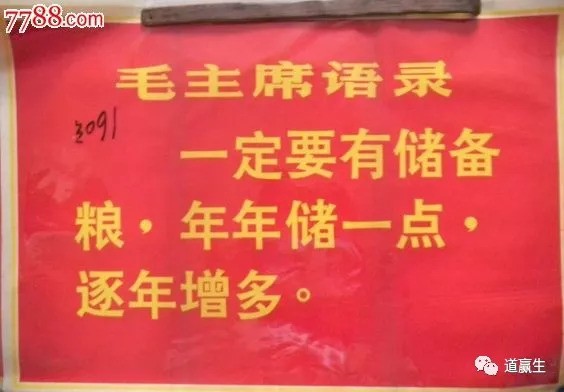 7788.com
毛主席语录
3091
一定要有储备
粮，年年储一点，
逐年增多。
道赢生